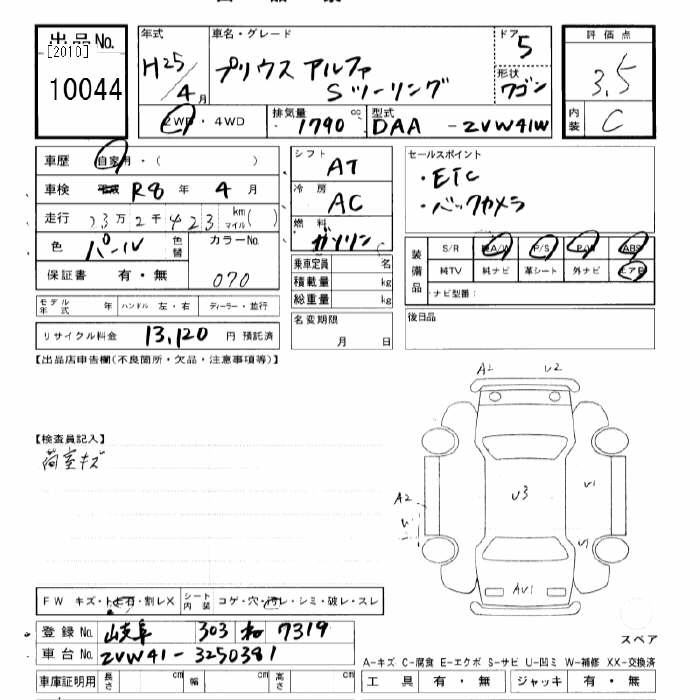 出品No.
[2010]
10044
年式
H25/4月
車名・グレード
プリウス アルファ
Sツーリング
ドア
5
形状
ワゴン
評価点
3.5
内装
C
2WD・4WD
排気量 1790 cc
型式 DAA - ZVW41W
車歴 自家用・( )
車検 R8年 4月
走行 13万2千423 km マイル( )
色 パール 色替
カラーNo.
070
保証書 有・無
モデル年式 年 ハンドル 左・右 ディーラー・並行
リサイクル料金 13,120 円 預託済
シフト AT
冷房 AC
燃料 ガソリン
乗車定員 名
積載量 kg
総重量 kg
名変期限
月 日
セールスポイント
・ETC
・バックカメラ
装備品
S/R 純A/W P/S P/W ABS
純TV 純ナビ 革シート 外ナビ エアB
・ナビ型番:
後日品
【出品店申告欄(不良箇所・欠品・注意事項等)】
【検査員記入】
荷室キズ
A2 U2
U3
U1
A2
W
U1
AU1
スペア
FW キズ・ト石・割レX
シート内装 コゲ・穴・汚レ・シミ・破レ・スレ
登録No. 岐阜 303 和 7319
車台No. ZVW41-3250381
車庫証明用 長さ cm 幅 cm 高さ cm
A-キズ C-腐食 E-エクボ S-サビ U-凹ミ W-補修 XX-交換済
工具 有・無 ジャッキ 有・無